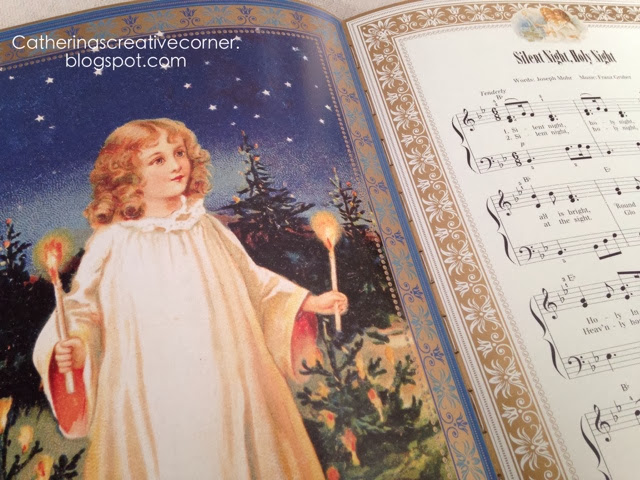 Catheringscreativecorner.
blogspot.com
Silent Night, Holy Night
Words: Joseph Mohr Music: Franz Gruber
Tenderly
B♭
1. Si - lent night, ho - ly night,
2. Si - lent night, ho - ly night,
P
E♭
all is bright, 'Round
at the sight, Glo
E♭
Ho - ly In
Heav'n - ly ho